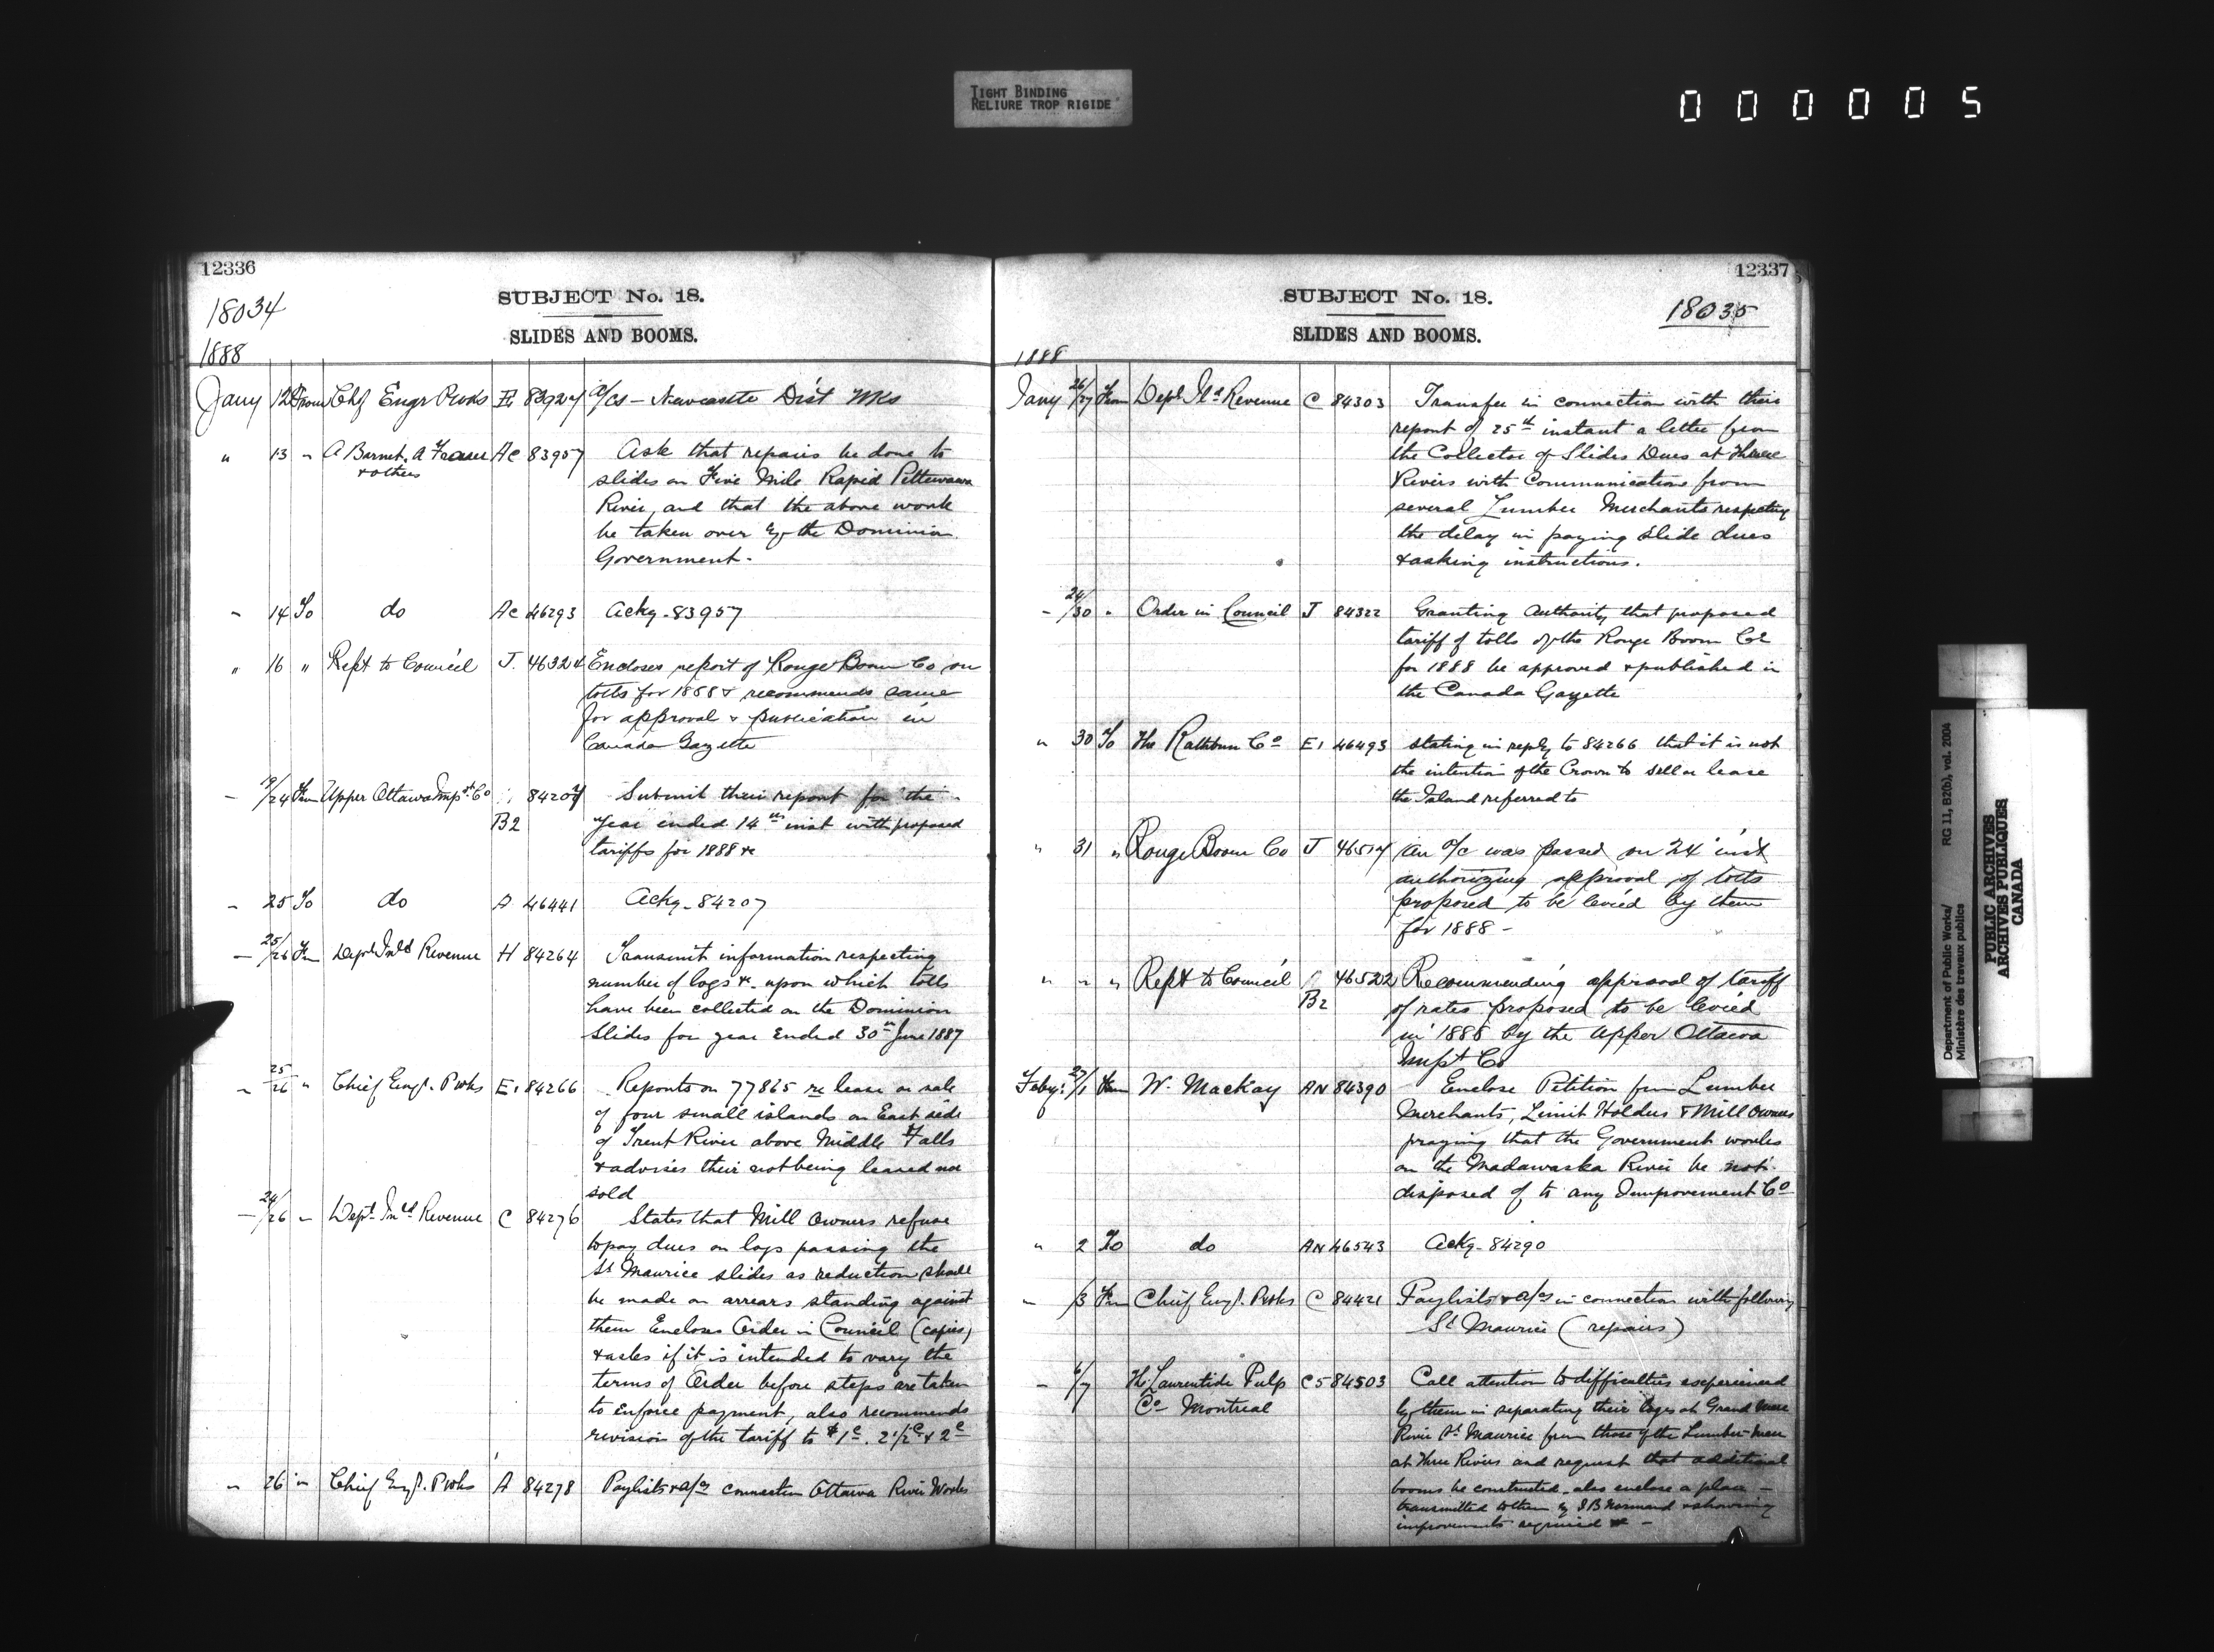 TIGHT BINDING
RELIURE TROP RIGIDE
000005
12336
SUBJECT No. 18.
18034
SLIDES AND BOOMS.
1888
Jany 12 From Chf Engr Pwks E1 83924 a/cs - Newcastle Dist Wks
" 13 " A Barnet, A Fraser & others AC 83957 Ask that repairs be done to
slides on Five Mile Rapid Pettewawa
River, and that the above work
be taken over by the Dominion
Government.
" 14 To do AC 46293 Ackg - 83957
" 16 " Rept to Council J. 46324 Encloses report of Rouge Boom Co on
tolls for 1888 & recommends same
for approval & publication in
Canada Gazette
- 19/24 From Upper Ottawa Impt Co B2 84207 Submit their report for the
year ended 14th inst with proposed
tariffs for 1888 &c
- 25 To do A 46441 Ackg - 84207
- 25/26 Fm Dept Inld Revenue H 84264 Transmit information respecting
number of logs &c upon which tolls
have been collected on the Dominion
Slides for year ended 30th June 1887
" 25/26 " Chief Engr. Pwks E1 84266 Reports on 77865 re lease or sale
of four small islands on East side
of Trent River above Middle Falls
& advises their not being leased nor
sold
- 24/26 " Dept Ind Revenue C 84276 States that Mill Owners refuse
to pay dues on logs passing the
St Maurice slides as reduction shall
be made on arrears standing against
them Encloses Order in Council (copies)
& asks if it is intended to vary the
terms of Order before steps are taken
to enforce payment, also recommends
revision of the tariff to 1c. 2 1/2c & 2c
" 26 " Chief Engr. Pwks A 84278 Paylists & a/cs connection Ottawa River Works
12337
SUBJECT No. 18.
18035
SLIDES AND BOOMS.
1888
Jany 26/27 From Dept Ind Revenue C 84303 Transfer in connection with their
report of 25th instant a letter from
the Collector of Slides Dues at Three
Rivers with Communications from
several Lumber Merchants respecting
the delay in paying slide dues
& asking instructions.
- 24/30 " Order in Council J 84322 Granting authority that proposed
tariff of tolls of the Rouge Boom Co
for 1888 be approved & published in
the Canada Gazette
" 30 To The Rathbun Co E1 46493 stating in reply to 84266 that it is not
the intention of the Crown to sell or lease
the Island referred to
" 31 " Rouge Boom Co J 46514 An O/C was passed on 24 inst
authorizing approval of tolls
proposed to be levied by them
for 1888 -
" " " Rept to Council B2 46522 Recommending approval of tariff
of rates proposed to be levied
in 1888 by the Upper Ottawa
Impt Co
Feby. 27/1 From W. Mackay AN 84390 Enclose Petition from Lumber
Merchants, Limit Holders & Mill Owners
praying that the Government works
on the Madawaska River be not
disposed of to any Improvement Co
" 2 To do AN 46543 Ackg - 84290
" /3 Fm Chief Engr. Pwks C 84421 Paylists & a/cs in connection with following
St Maurice (repairs)
- 6/7 The Laurentide Pulp Co Montreal C5 84503 Call attention to difficulties experienced
by them in separating their logs at Grand Mere
River St Maurice from those of the Lumber Men
at Three Rivers and request that additional
booms be constructed, also enclose a plan
transmitted to them by J B Normand & showing
improvements required &c -
Department of Public Works/ RG 11, B2(b), vol. 2004
Ministère des travaux publics
PUBLIC ARCHIVES
ARCHIVES PUBLIQUES
CANADA